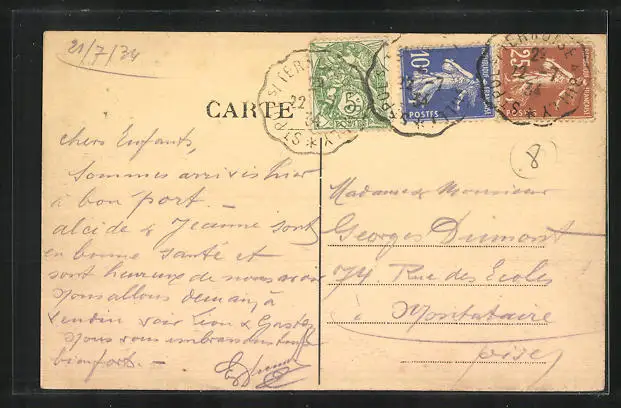 21/7/34
CARTE
5c
POSTES
10c
POSTES
25c
POSTES
22
34
22 -7
34
22 -7
34
8
chers Enfants,
Sommes arrivés hier
à bon port. –
alcide & Jeanne sont
en bonne santé et
sont heureux de nous avoir
nous allons demain à
Vendin voir Léon &
nous vous embrassons tous
bien fort. –
Madame & Monsieur
Georges Dumont
74 Rue des Ecoles
à Montataire
oise